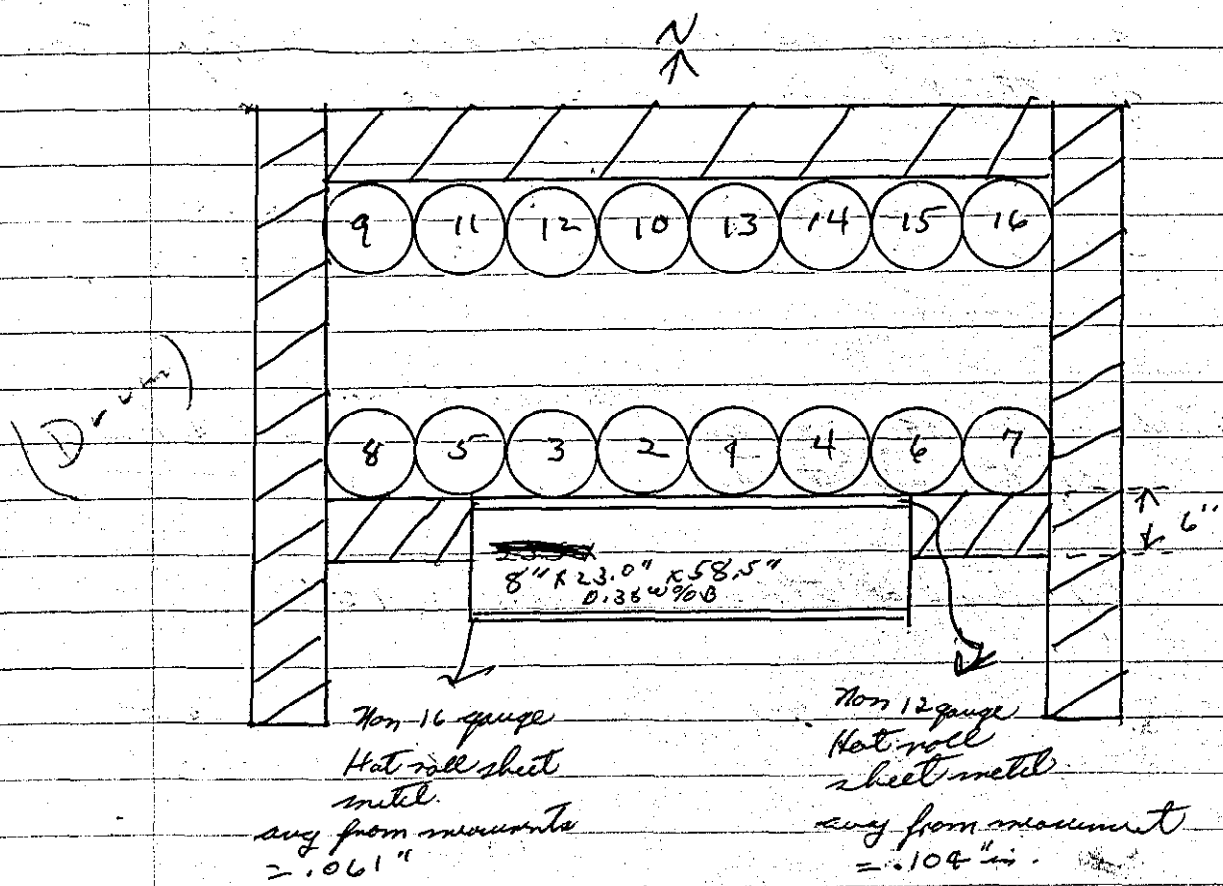 N
9 11 12 10 13 14 15 16
(Drum)
8 5 3 2 1 4 6 7
6"
8" x 23.0" x 58.5"
0.36 w% B
Nom 16 gauge
Hot roll sheet
metel.
avg from
= .061"
Nom 12 gauge
Hot roll
sheet metel
avg from measurment
= .104" in.